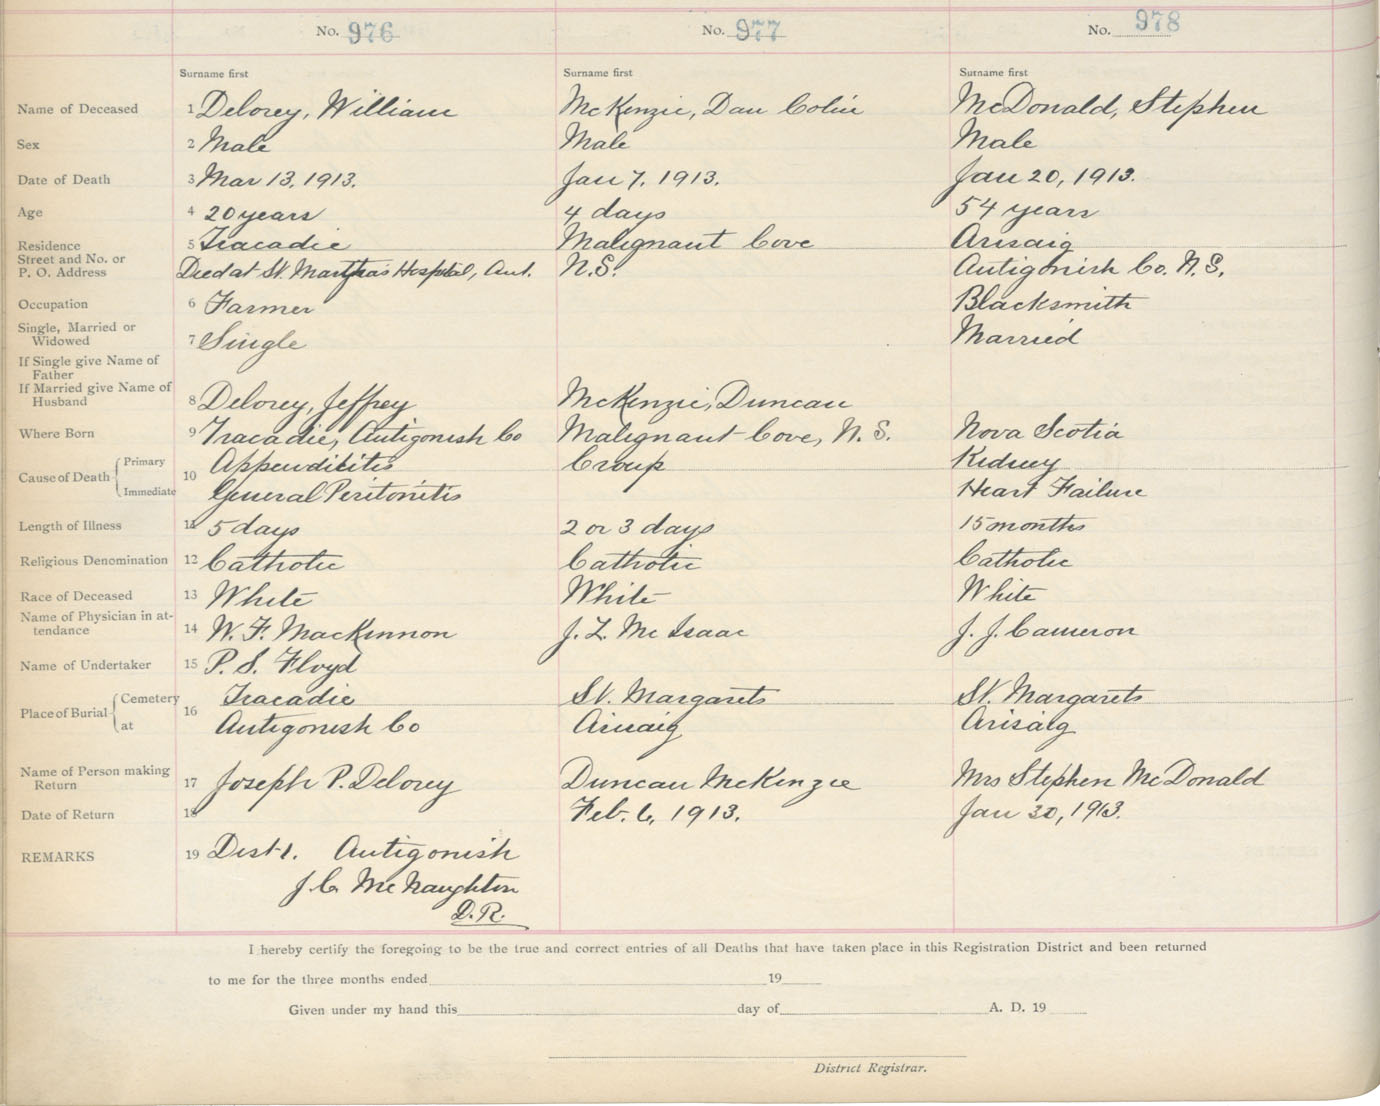 No. 976 No. 977 No. 978
Surname first Surname first Surname first
Name of Deceased 1 Delorey, William McKenzie, Dan Colin McDonald, Stephen
Sex 2 Male Male Male
Date of Death 3 Mar 13, 1913. Jan 7, 1913. Jan 20, 1913.
Age 4 20 years 4 days 54 years
Residence 5 Tracadie Malignant Cove Arisaig
Street and No. or
P. O. Address Died at St. Martha's Hospital, Ant. N.S. Antigonish Co. N.S.
Occupation 6 Farmer Blacksmith
Single, Married or
Widowed 7 Single Married
If Single give Name of
Father
If Married give Name of
Husband 8 Delorey, Jeffrey McKenzie, Duncan
Where Born 9 Tracadie, Antigonish Co Malignant Cove, N.S. Nova Scotia
Cause of Death Primary 10 Appendicitis Croup Kidney
Immediate General Peritonitis Heart Failure
Length of Illness 11 5 days 2 or 3 days 15 months
Religious Denomination 12 Catholic Catholic Catholic
Race of Deceased 13 White White White
Name of Physician in at-
tendance 14 W. F. MacKinnon J. L. McIsaac J. J. Cameron
Name of Undertaker 15 P. S. Floyd
Place of Burial Cemetery 16 Tracadie St. Margarets St. Margarets
at Antigonish Co Arisaig Arisaig
Name of Person making
Return 17 Joseph P. Delorey Duncan McKenzie Mrs Stephen McDonald
Date of Return 18 Feb. 6, 1913. Jan 30, 1913.
REMARKS 19 Dist 1. Antigonish
J. C. McNaughton
D.R.
I hereby certify the foregoing to be the true and correct entries of all Deaths that have taken place in this Registration District and been returned
to me for the three months ended 19
Given under my hand this day of A. D. 19
District Registrar.